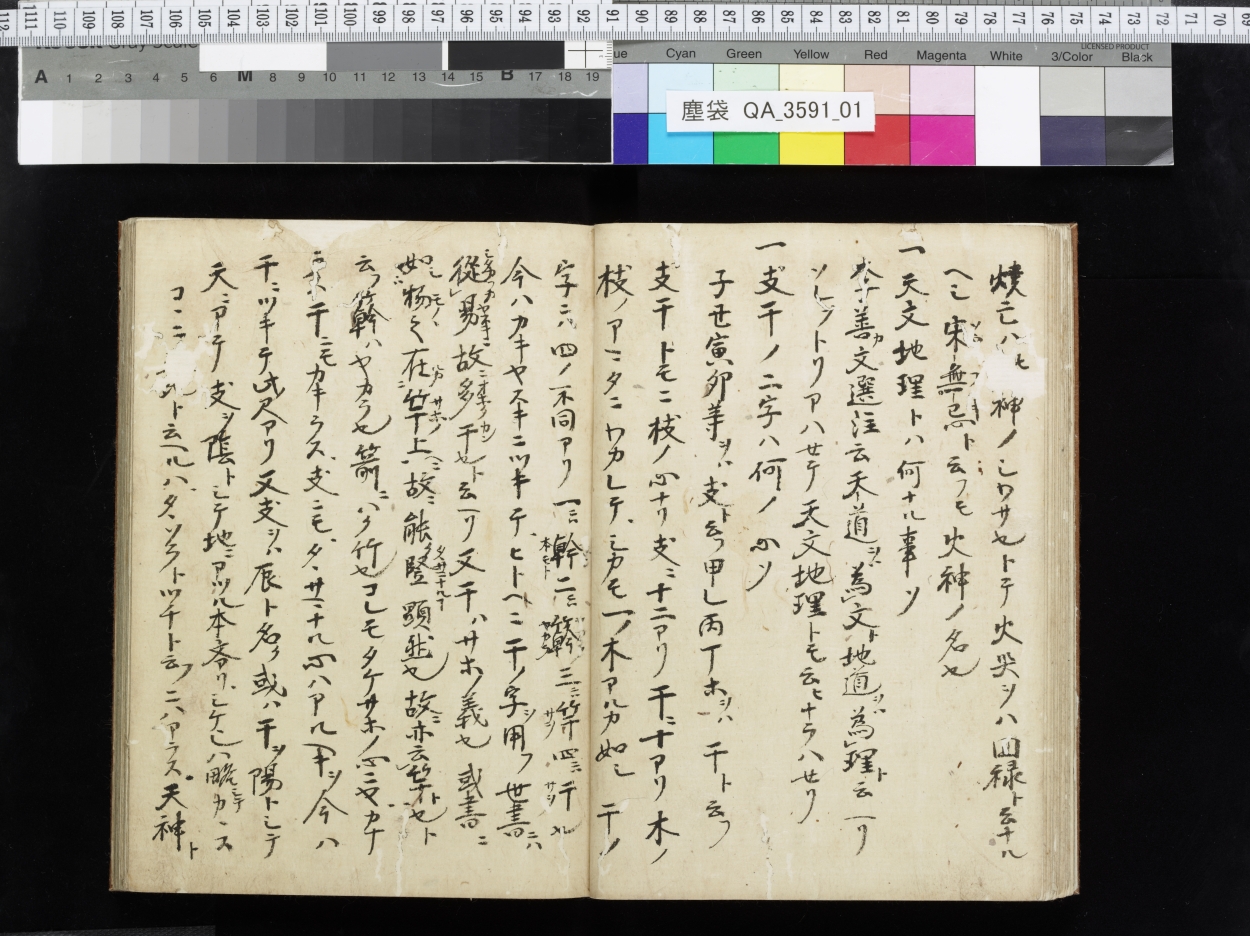 塵袋 QA_3591_01
Cyan Green Yellow Red Magenta White 3/Color Black
LICENSED PRODUCT
A 1 2 3 4 5 6 M 8 9 10 11 12 13 14 15 B 17 18 19
燒亡ハ 神ノシワサセトテ火災ヲハ回禄ト云ナル
ヘシ宋無忌ト云フモ火神ノ名也
一天文地理トハ何ナル事ソ
李善カ文選注云天道ヲハ為文ト地道ヲハ為理ト云ヘリ
ソレヲトリアハセテ天文地理トモ云ヒナラハセリ
一支干ノ二字ハ何ノ心ソ
子丑寅卯等ヲハ支ト云フ甲乙丙丁ホヲハ干ト云フ
支干トモニ枝ノ心ナリ支ニ十二アリ干ニ十アリ木ノ
枝ノアマタニワカレテシカモ一ノ木アルカ如シ干ノ
字ニハ四ノ不同アリ一ニ幹二ニ簳三ニ竿四ニ干
今ハカキヤスキニツキテヒトヘニ干ノ字ヲ用フ世書ニハ
從易故多干也ト云ヘリ又干ハサホノ義也或書ニ
如物之在竿上故能竪顕然也故亦云竿也ト
云フ簳ハヤカラ也箭ニハク竹也コレモタケサホノ心ニヤカナ
干ニモカキラス支ニモタ ナル心ハアルヘキヲ今ハ
干ニツキテ此尺アリ又支ヲハ辰ト名ク或ハ干ヲ陽トシテ
天ニアテ支ヲ陰トシテ地ニアツル本文アリシケケレハ略シテカヽス
コヽニ ト云ヘルハタヽソラトツチト云フニハアラス天神ト